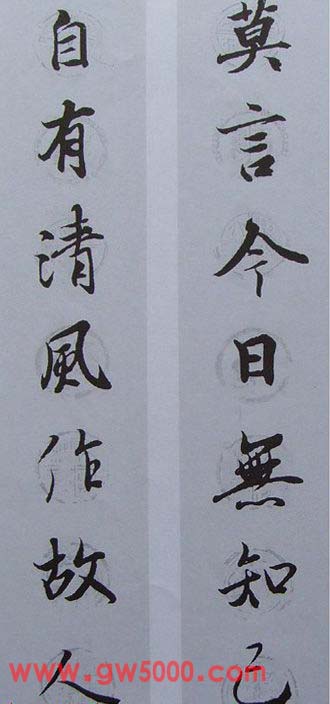 莫言今日無知己
自有清風作故人
www.gw5000.com